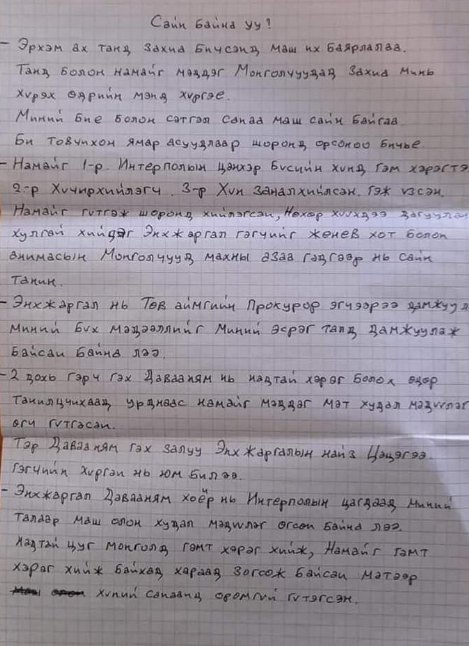 Сайн байна уу!
- Эрхэм ах танд захиа бичсэнд маш их баярлалаа.
Танд болон намайг мэддэг Монголчуудад захиа минь
хүрэх өдрийн мэнд хүргэе.
Миний бие болон сэтгэл санаа маш сайн байгаа.
Би товчихон ямар асуудлаар шоронд орсоноо бичье.
- Намайг 1-р Интерполын цэнхэр бүсийн хүнд гэм хэрэгтэ
2-р Хүчирхийлэгч. 3-р Хүн заналхийлсэн. гэж үзсэн.
Намайг гүтгэж шоронд хийлгэсэн, Нөхөр хүүхдээ дагуулан
хулгай хийдэг Энхжаргал гэгчийг женев хот болон
анимасын Монголчууд махны азаа гэдгээр нь сайн
таних.
- Энхжаргал нь Төв аймгийн Прокурор эгчээрээ дамжуул
миний бүх мэдээллийг миний эсрэг талд дамжуулж
байсан байна лээ.
- 2 дохь гэрч гэх Давааням нь надтай хэрэг болох өдөр
танилцчихаад урднаас намайг мэддэг мэт худал мэдүүлэг
өгч гүтгэсэн.
Тэр Давааням гэх залуу Энхжаргалын найз Цэцэгээ
гэгчийн хүргэн нь юм билээ.
- Энхжаргал Давааням хоёр нь Интерполын цагдаад миний
талаар маш олон худал мэдүүлэг өгсөн байна лээ.
надтай цуг монголд гэмт хэрэг хийж, Намайг гэмт
хэрэг хийж байхад хараад зогсож байсан мэтээр
хүний санаанд оромгүй гүтгэсэн.